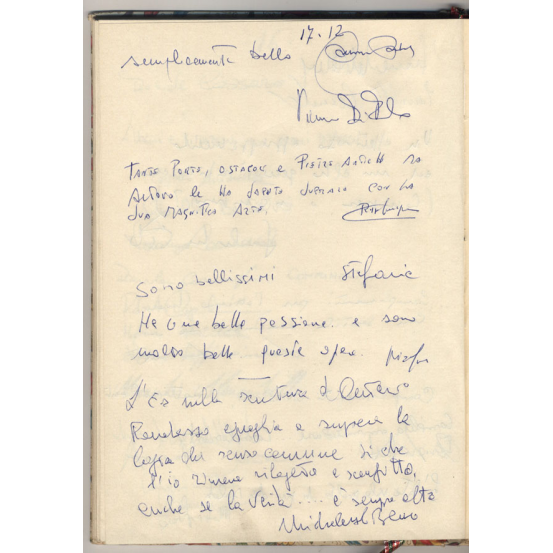 17.12
semplicemente bello
Tante Porte, ostacoli e Pietre Antiche ma
Arturo le ha sapute superare con la
sua magnifica Arte.
Sono bellissimi Stefania
Ha una bella passione. e sono
molto belle queste opere.
L'Es nella scultura di Arturo
Randazzo eguaglia e supera la
logica del senso comune sì che
l'io rimane rilegato e sconfitto,
anche se la verità .... è sempre alta